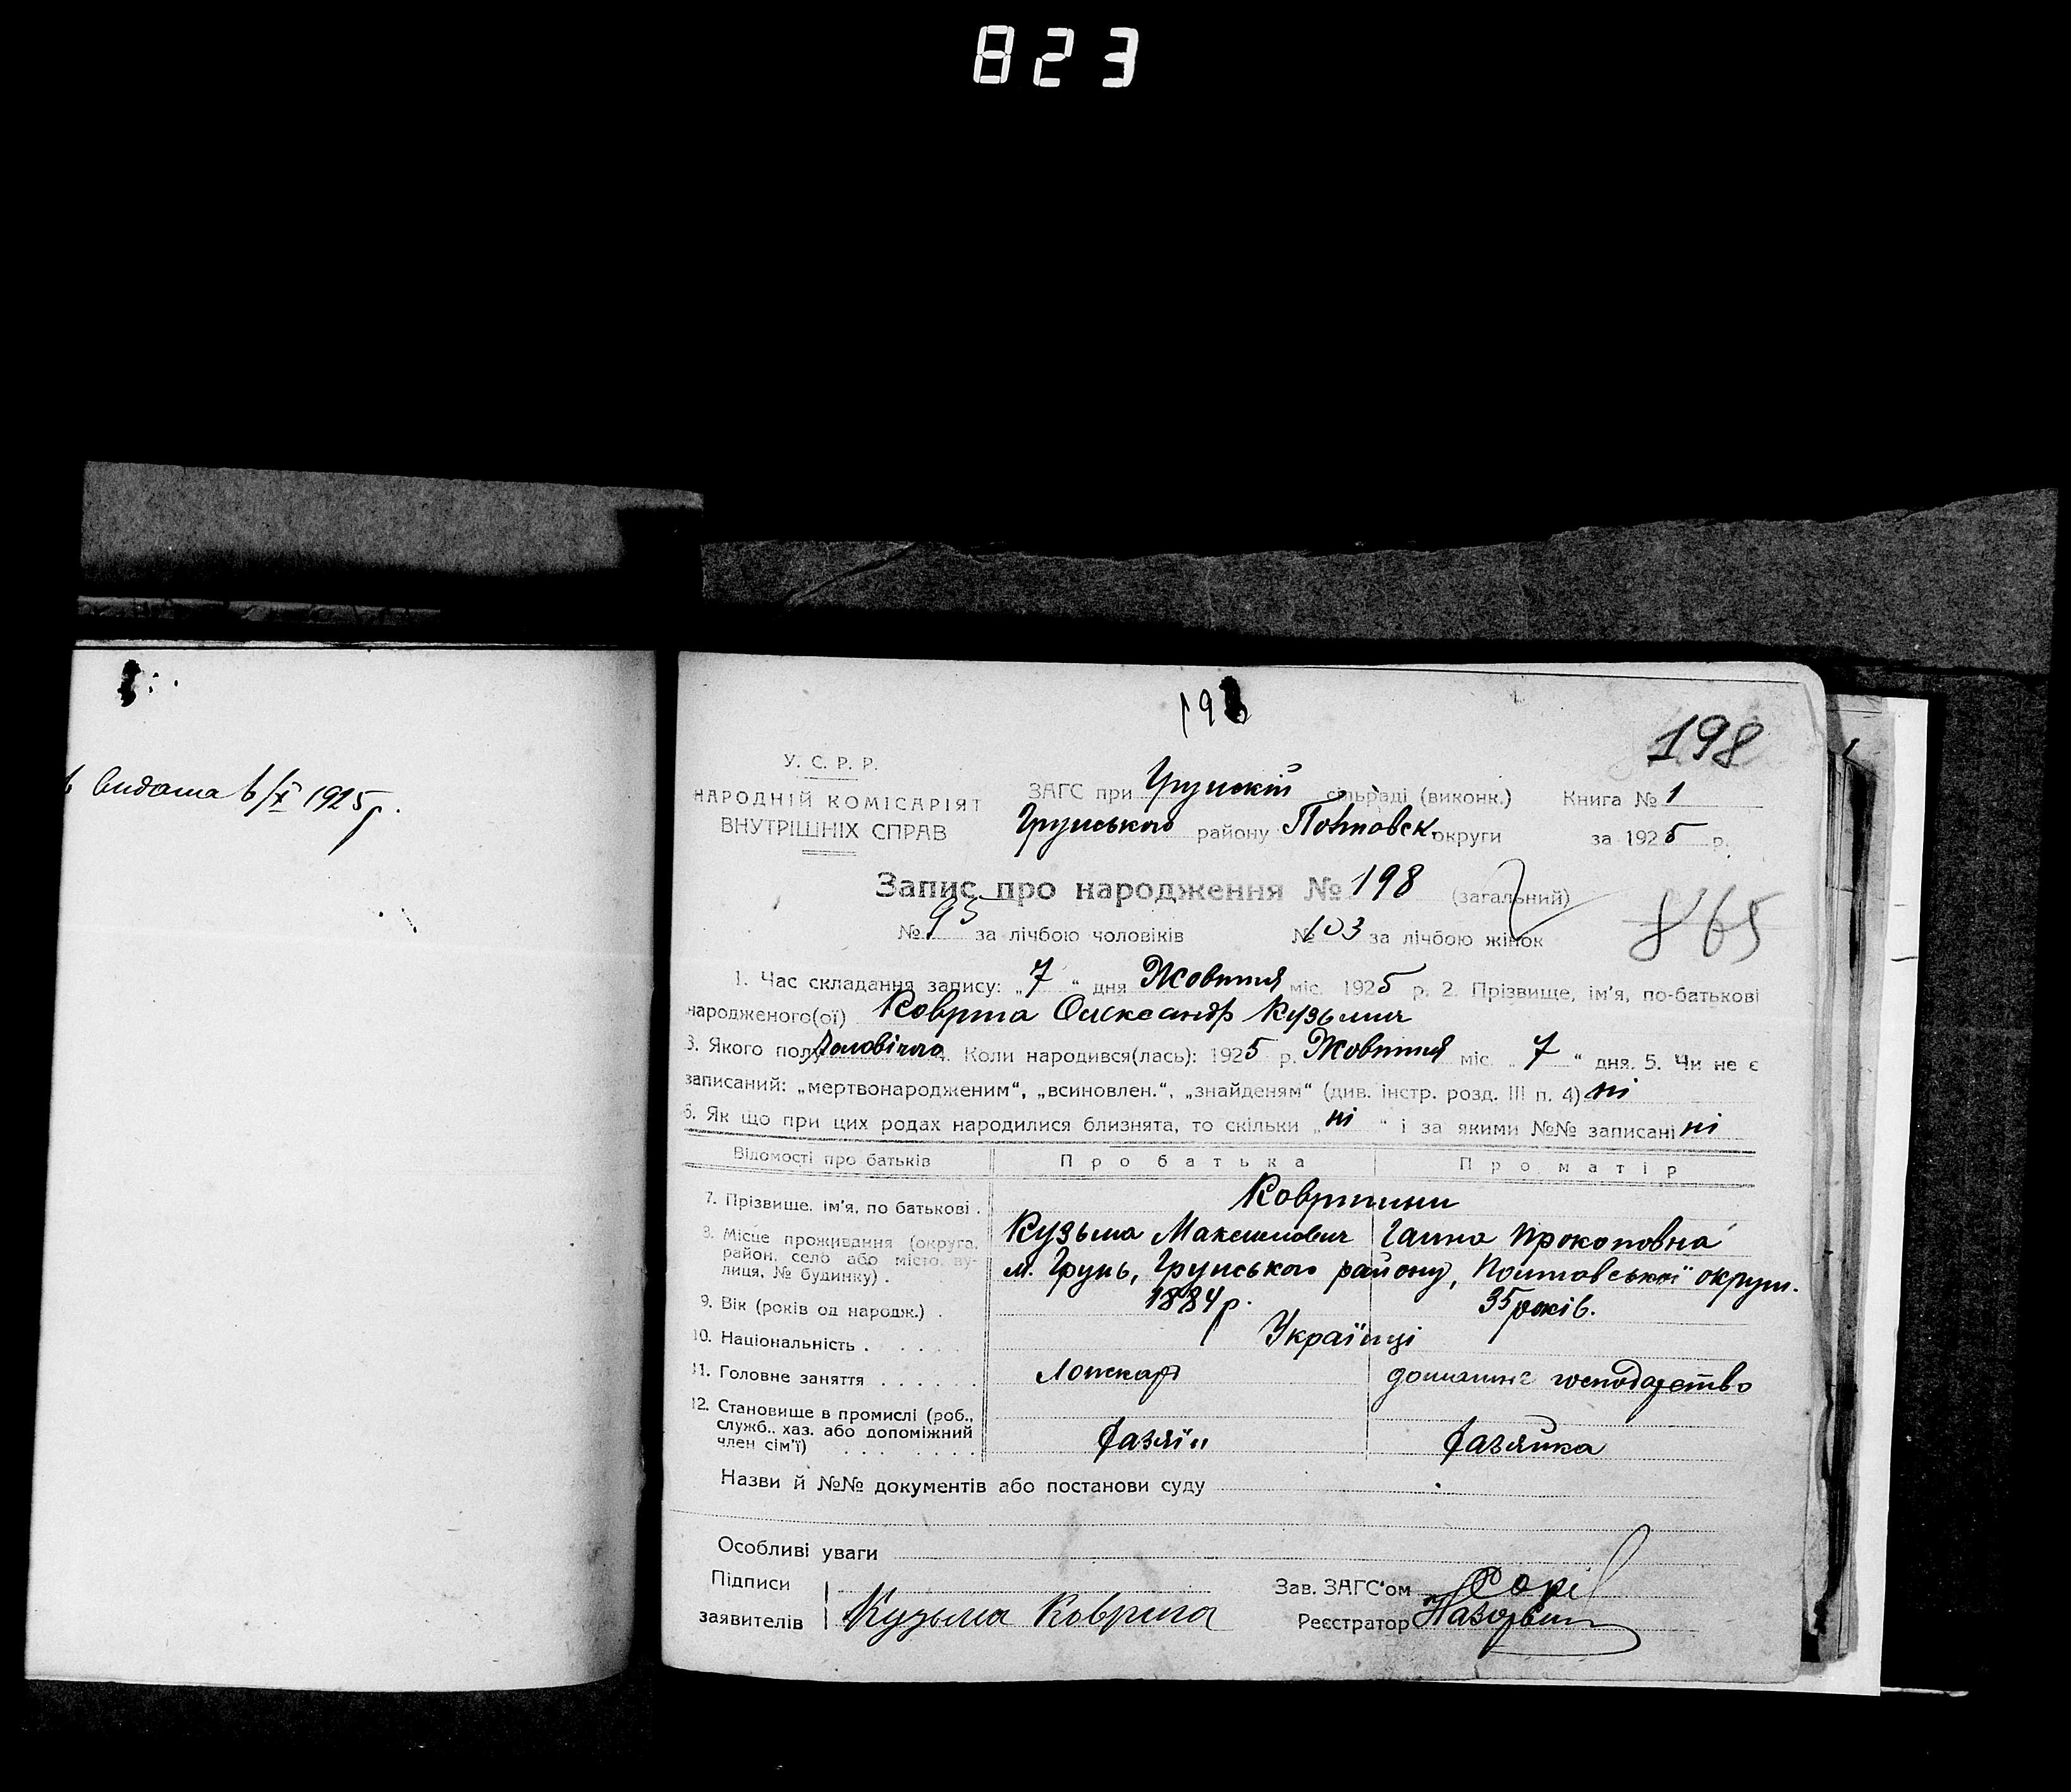 823
видана 6/X 1925 р.
198
198
У. С. Р. Р.
НАРОДНІЙ КОМІСАРІЯТ
ВНУТРІШНІХ СПРАВ
ЗАГС при Грунскій сільраді (виконк.) Книга № 1
Грунського району Полтавськ. округи за 1925 р.
Запис про народження № 198 (загальний)
865
№ 95 за лічбою чоловіків № 103 за лічбою жінок
1. Час складання запису: „7“ дня Жовтня міс. 1925 р. 2. Прізвище, ім'я, по-батькові
народженого(ої) Коврига Олександр Кузьмич
3. Якого полу Чоловічого 4. Коли народився(лась): 1925 р. Жовтня міс. „7“ дня. 5. Чи не є
записаний: „мертвонародженим“, „всиновлен.“, „знайденям“ (див. інстр. розд. III п. 4) ні
6. Як що при цих родах народилися близнята, то скільки „ні“ і за якими №№ записані ні
Відомості про батьків Про батька Про матір
7. Прізвище, ім'я, по батькові .
Кузьма Максимович Ганна Прокоповна
8. Місце проживання (округа, район, село або місто, ву-
лиця, № будинку) . м. Грунь, Грунського району, Полтавської округи.
9. Вік (років од народж.) . 1884 р. 35 років.
10. Національність . Українці
11. Головне заняття . . . . . домашнє господарство
12. Становище в промислі (роб.,
служб., хаз. або допоміжний
член сім'ї) . . . . . . . хазяїн хазяйка
Назви й №№ документів або постанови суду
Особливі уваги
Підписи Зав. ЗАГС'ом
заявителів Кузьма Коврига Реєстратор